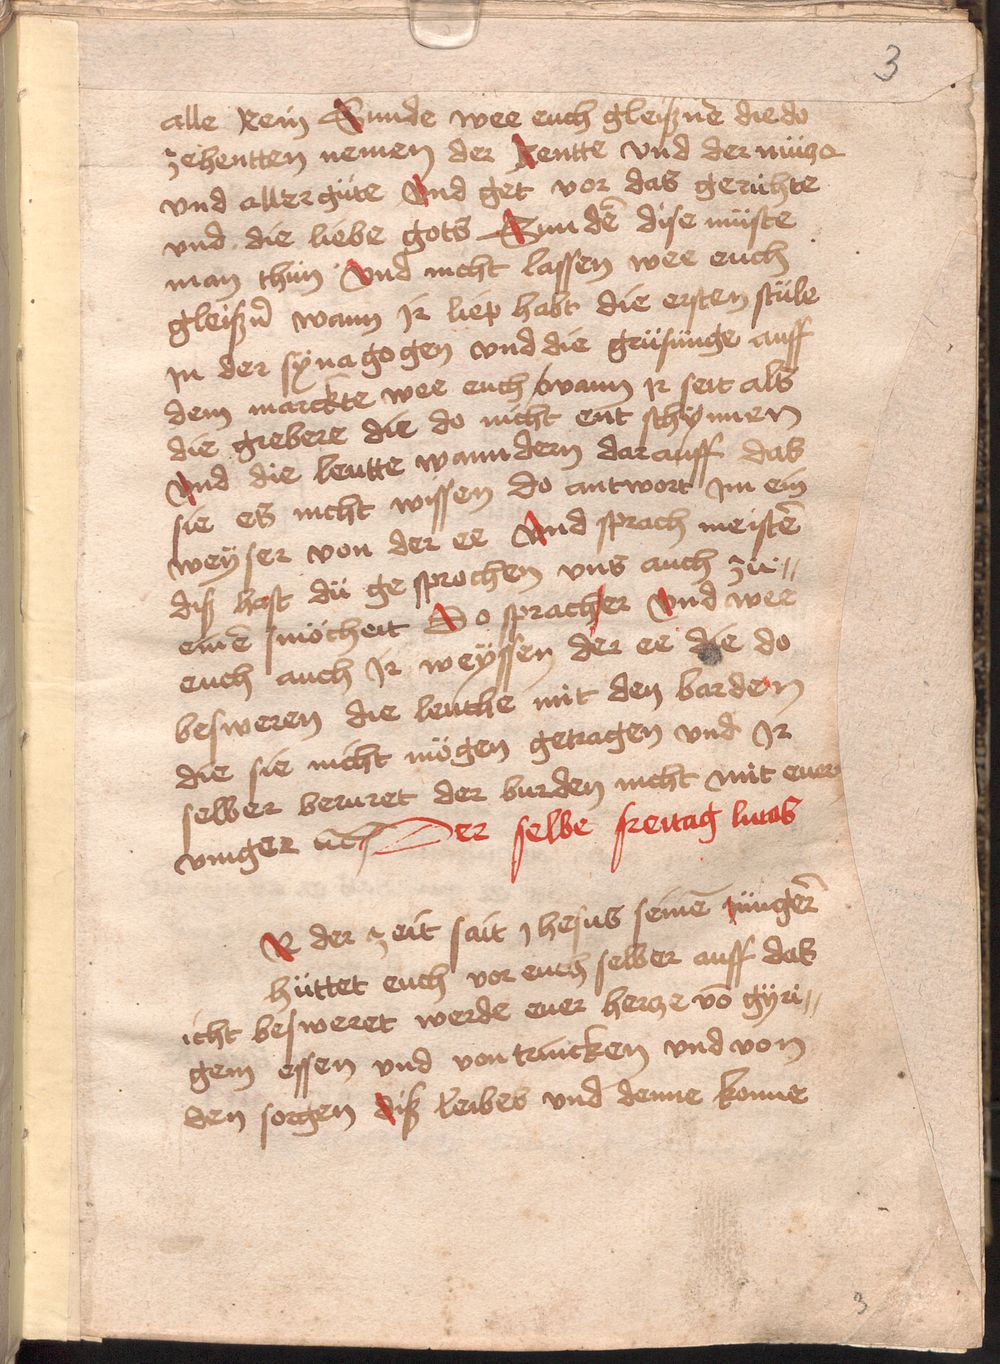 3
alle rein Sunde wee euch gleißnẽ die do
zehentten nemen der Rentte vnd der müße
vnd aller güte Vnd get vor das gerichte
vnd die liebe gots Sundẽ dise müste
man thün Vnd nicht lassen wee euch
gleißnẽ wann jr liep habt die ersten stüle
jn der synagogen vnd die grüsünge auff
dem marckte wee euch wann jr seit als
die grebere die do nicht ent schynnen
Vnd die leutte wanndern darauff das
sie es nicht wissen Do antwort jm ein
weyser von der ee Vnd sprach meistẽ
diß hast dü ge sprochen vns auch zu//
einẽ smöcheit Do sprach er Vnd wee
euch auch jr weyssen der ee die do
besweren die leuthe mit den barden
die sie nicht mögen getragen vnd jr
selber beruret der burden nicht mit euer
vinger
Der selbe freitag lucas
N der zeit sait jhesus seinẽ jüngerñ
hüttet euch vor euch selber auff das
icht besweret werde euer hercze võ gyri//
gem essen vnd von trincken vnd von
den sorgen diß leibes vnd denne konne
3